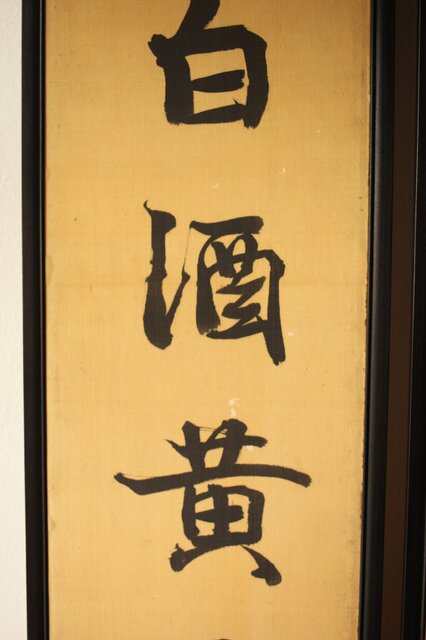 白酒黄